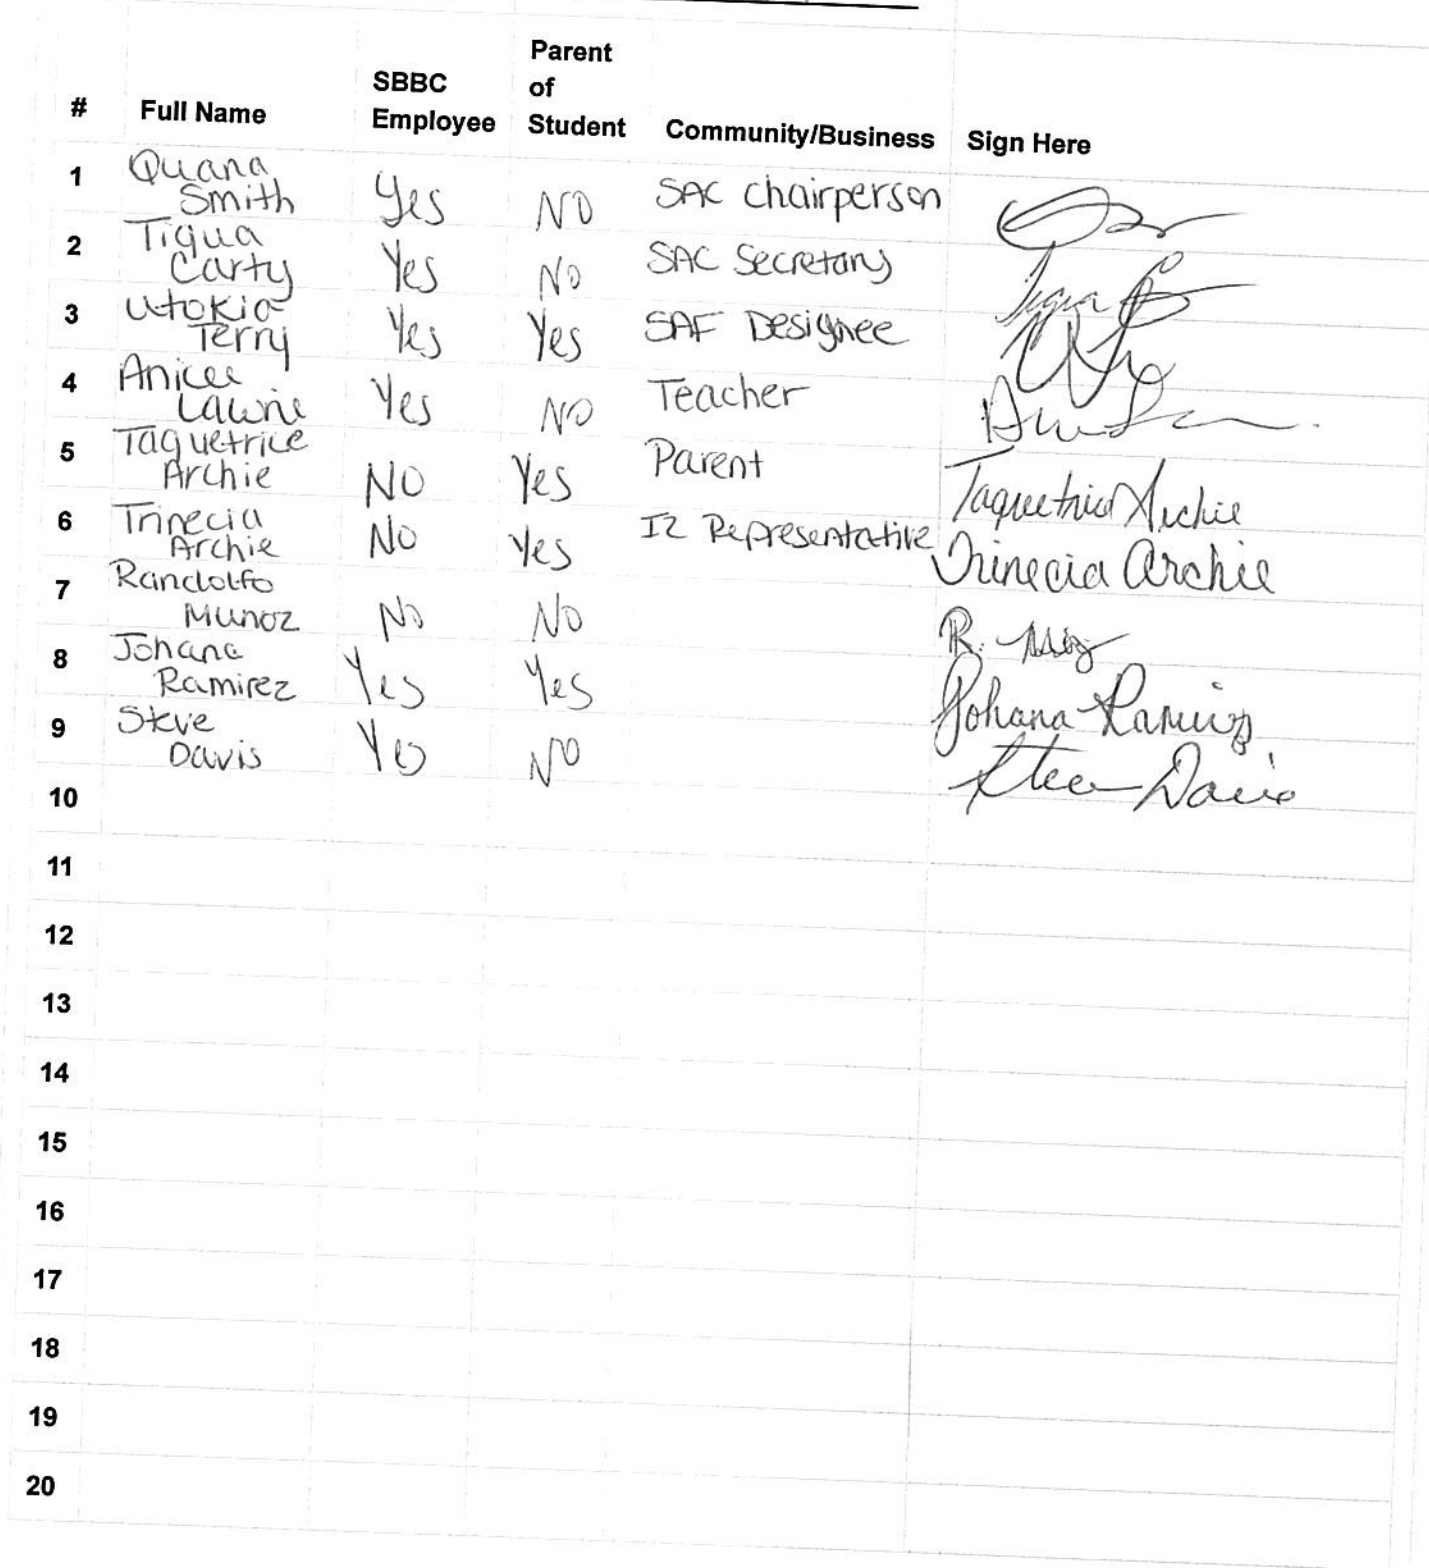 # Full Name SBBC Employee Parent of Student Community/Business Sign Here
1 Quana Smith Yes NO SAC Chairperson
2 Tiqua Carty Yes No SAC Secretary
3 Utokia Terry Yes Yes SAF Designee
4 Anicee Lawrie Yes NO Teacher
5 Taquetrice Archie NO Yes Parent Taquetrice Archie
6 Trinecia Archie No Yes I2 Representative Trinecia Archie
7 Randolfo Munoz No No R.
8 Johana Ramirez Yes Yes Johana Ramirez
9 Steve Davis Yes NO Davis
10
11
12
13
14
15
16
17
18
19
20